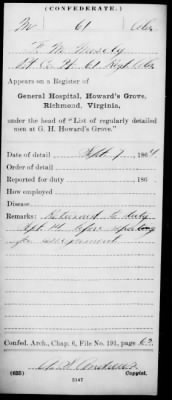 (CONFEDERATE.)
M 61
F. M. Mosely
Co. H. 61
Appears on a Register of
General Hospital, Howard's Grove,
Richmond, Virginia,
under the head of "List of regularly detailed
men at G. H. Howard's Grove."
Date of detail Sept 7, 1864.
Order of detail
Reported for duty 186
How employed
Disease
Remarks: Returned to duty
Sept
for assignment
Confed. Arch., Chap. 6, File No. 191, page 63
(635) Copyist.